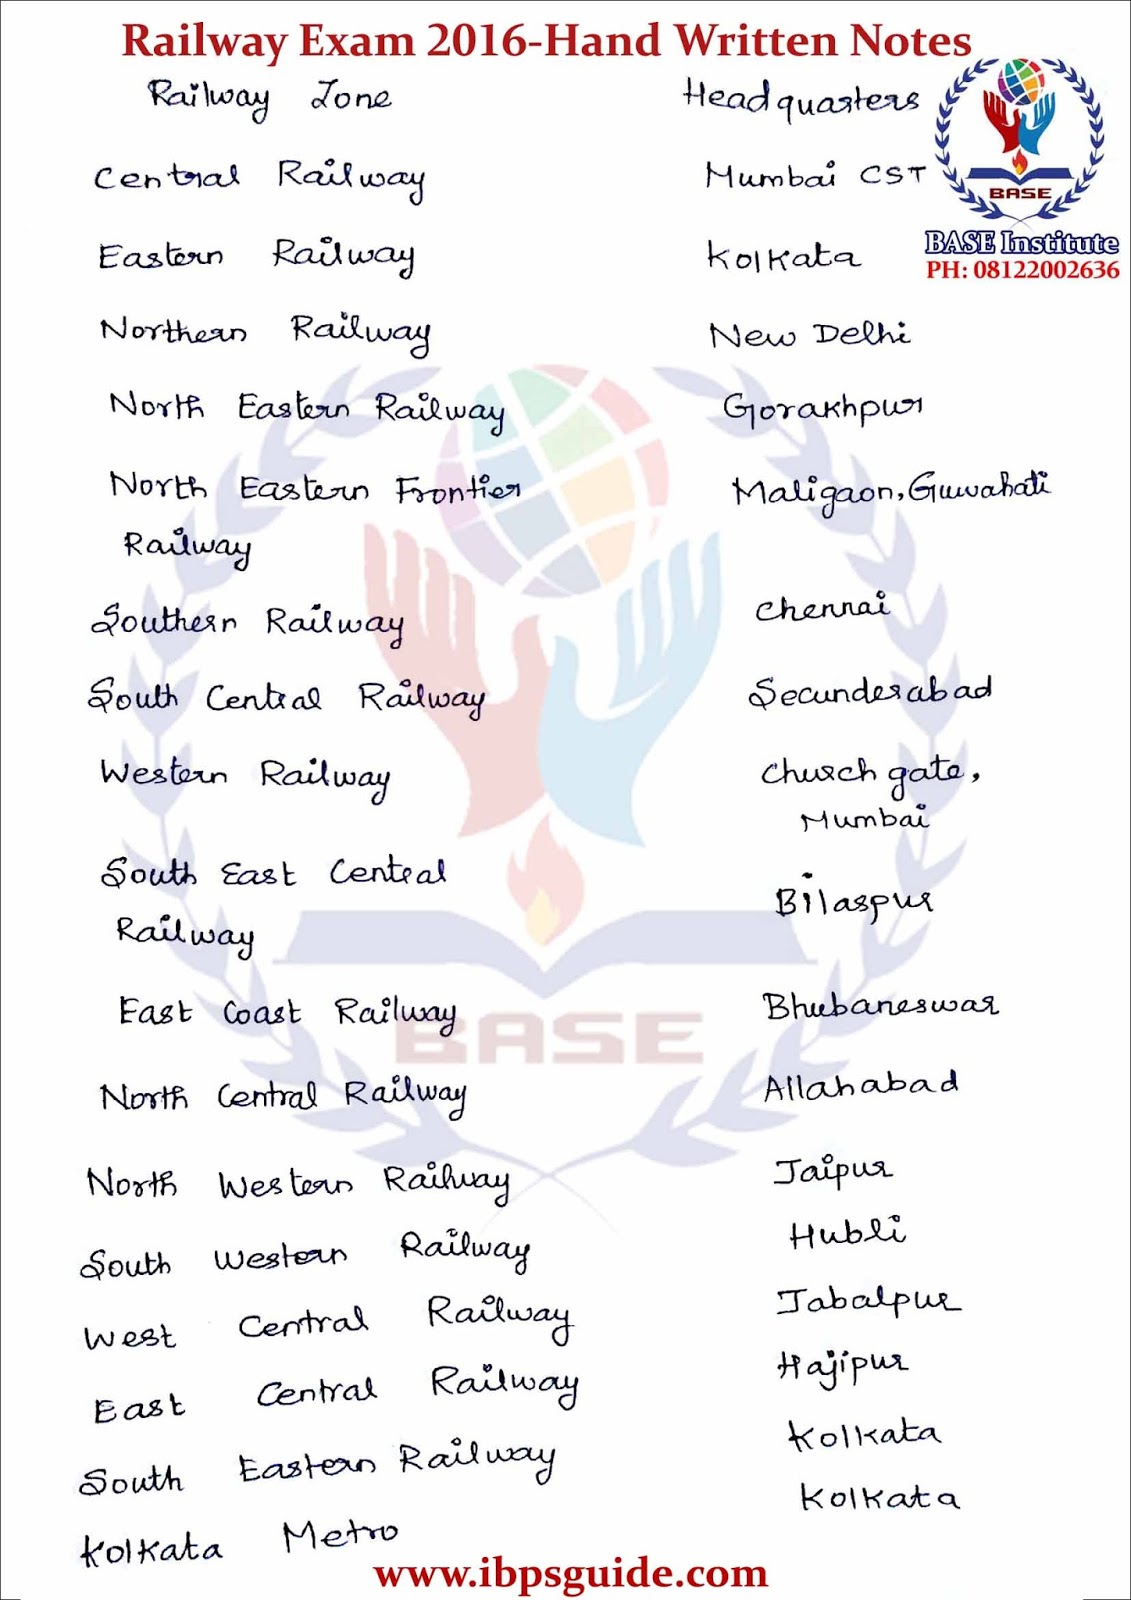 Railway Exam 2016-Hand Written Notes
Railway Zone Headquarters
Central Railway Mumbai CST
BASE
BASE Institute
PH: 08122002636
Eastern Railway Kolkata
Northern Railway New Delhi
North Eastern Railway Gorakhpur
North Eastern Frontier Maligaon, Guwahati
Railway
Southern Railway Chennai
South Central Railway Secunderabad
Western Railway Church gate,
Mumbai
South East Central Bilaspur
Railway
East Coast Railway Bhubaneswar
BASE
North Central Railway Allahabad
North Western Railway Jaipur
South Western Railway Hubli
West Central Railway Jabalpur
East Central Railway Hajipur
South Eastern Railway Kolkata
Kolkata Metro Kolkata
www.ibpsguide.com